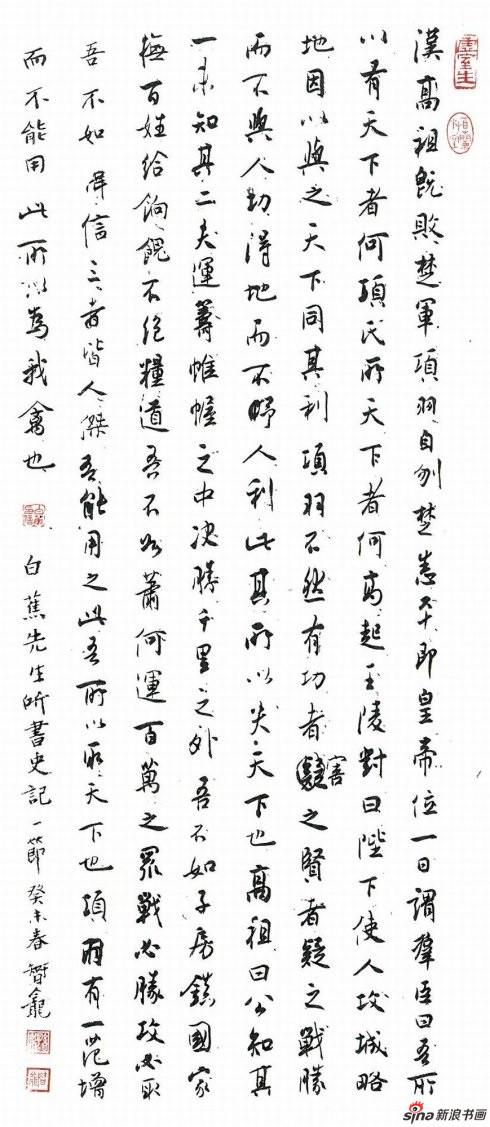 漢高祖既敗楚軍項羽自刎楚悉平即皇帝位一日謂羣臣曰吾所
以有天下者何項氏所天下者何高起王陵對曰陛下使人攻城略
地因以與之天下同其利項羽不然有功者疑害之賢者疑之戰勝
而不與人功得地而不予人利此其所以失天下也高祖曰公知其
一未知其二夫運籌帷幄之中决勝千里之外吾不如子房鎮國家
撫百姓給餉餽不絕糧道吾不如蕭何運百萬之眾戰必勝攻必取
吾不如韓信三者皆人傑吾能用之此吾所以取天下也項羽有一范增
而不能用此所以為我禽也
白蕉先生所書史記一節癸未春智龕
sina新浪书画